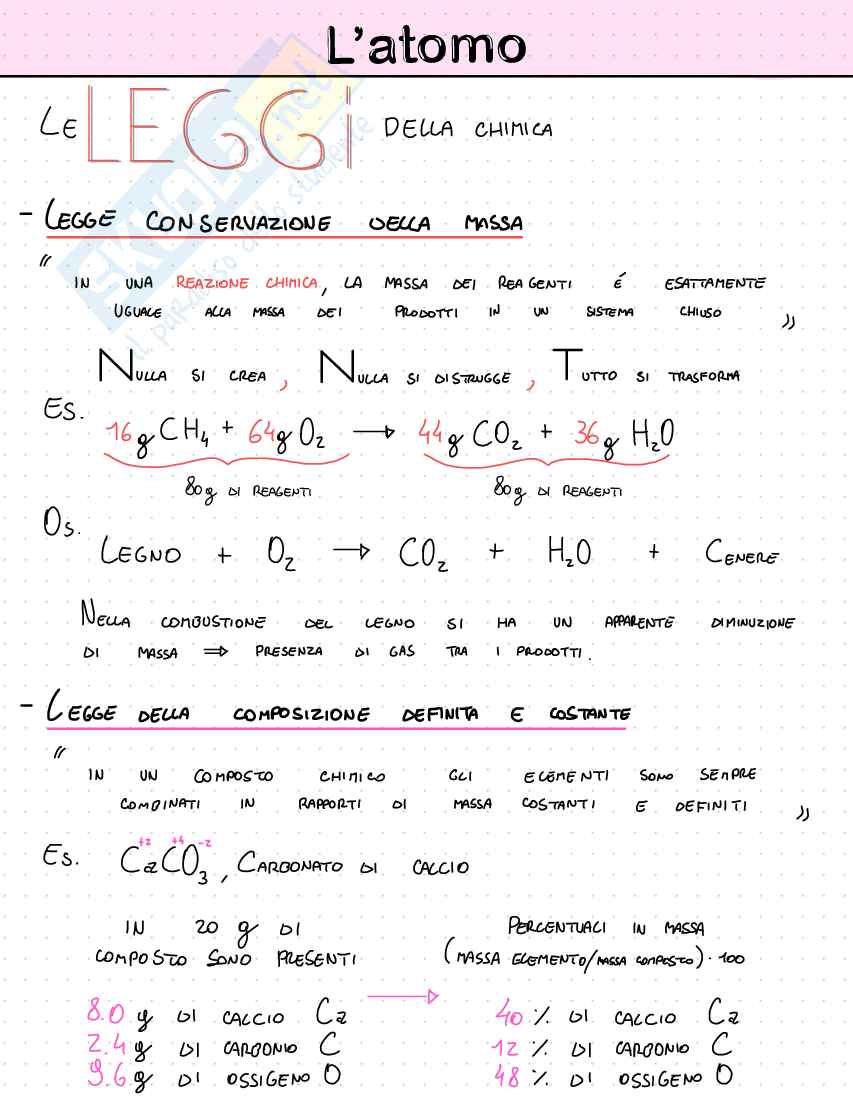 L'atomo
LE LEGGI DELLA CHIMICA
- LEGGE CONSERVAZIONE DELLA MASSA
" IN UNA REAZIONE CHIMICA, LA MASSA DEI REAGENTI É ESATTAMENTE
UGUALE ALLA MASSA DEI PRODOTTI IN UN SISTEMA CHIUSO "
NULLA SI CREA, NULLA SI DISTRUGGE, TUTTO SI TRASFORMA
ES. 16g CH₄ + 64g O₂ → 44g CO₂ + 36g H₂O
80g DI REAGENTI 80g DI REAGENTI
OS. LEGNO + O₂ → CO₂ + H₂O + CENERE
NELLA COMBUSTIONE DEL LEGNO SI HA UN APPARENTE DIMINUZIONE
DI MASSA ⇒ PRESENZA DI GAS TRA I PRODOTTI.
- LEGGE DELLA COMPOSIZIONE DEFINITA E COSTANTE
" IN UN COMPOSTO CHIMICO GLI ELEMENTI SONO SEMPRE
COMBINATI IN RAPPORTI DI MASSA COSTANTI E DEFINITI "
+2 +4 -2
ES. CaCO₃, CARBONATO DI CALCIO
IN 20 g DI PERCENTUALI IN MASSA
COMPOSTO SONO PRESENTI (MASSA ELEMENTO/MASSA COMPOSTO)·100
8.0 g DI CALCIO Ca → 40 % DI CALCIO Ca
2.4 g DI CARBONIO C 12 % DI CARBONIO C
9.6 g DI OSSIGENO O 48 % DI OSSIGENO O
SKUOLA.net
il paradiso dello studente